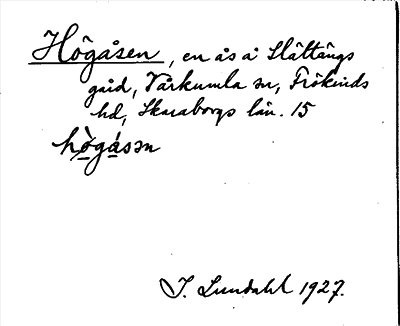 Högåsen, en ås å Slättängs
gård, Vårkumla sn, Frökinds
hd, Skaraborgs län. 15
hògásən
J. Lundahl 1927.